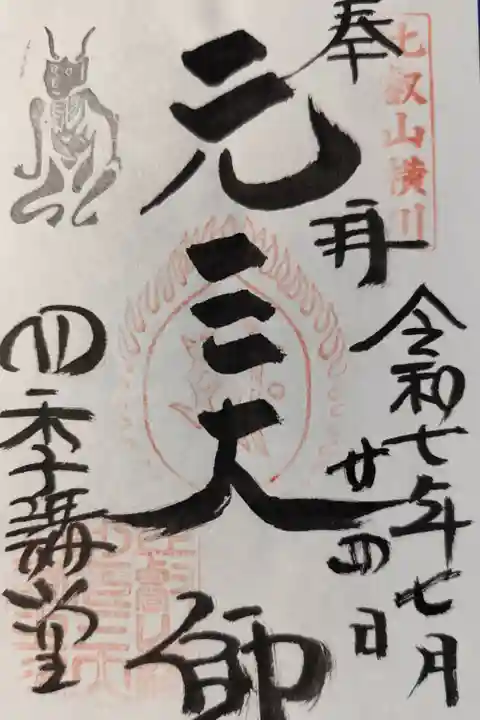 比叡山横川
奉
拝
令和七年七月
廿四日
元三大師
四季講堂